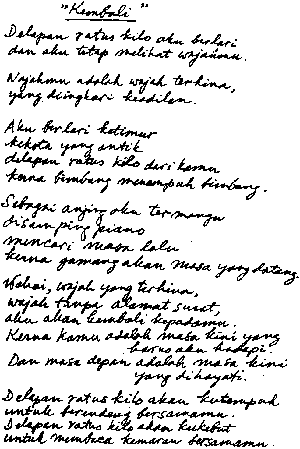 "Kembali"
Delapan ratus kilo aku berlari
dan aku tetap melihat wajahmu.
Wajahmu adalah wajah terhina,
yang diingkari keadilan.
Aku berlari ketimur
kekota yang antik
delapan ratus kilo dari kamu
kerna bimbang menempuh bimbang.
Sebagai anjing aku termangu
disamping piano
mencari masa lalu
kerna gamang akan masa yang datang.
Wahai, wajah yang terhina,
wajah tanpa alamat surat,
aku akan kembali kepadamu.
Kerna kamu adalah masa kini yang
harus aku hadapi.
Dan masa depan adalah masa kini
yang dihayati.
Delapan ratus kilo akan kutempuh
untuk berendeng bersamamu.
Delapan ratus kilo akan kukebut
untuk membaca koran bersamamu.